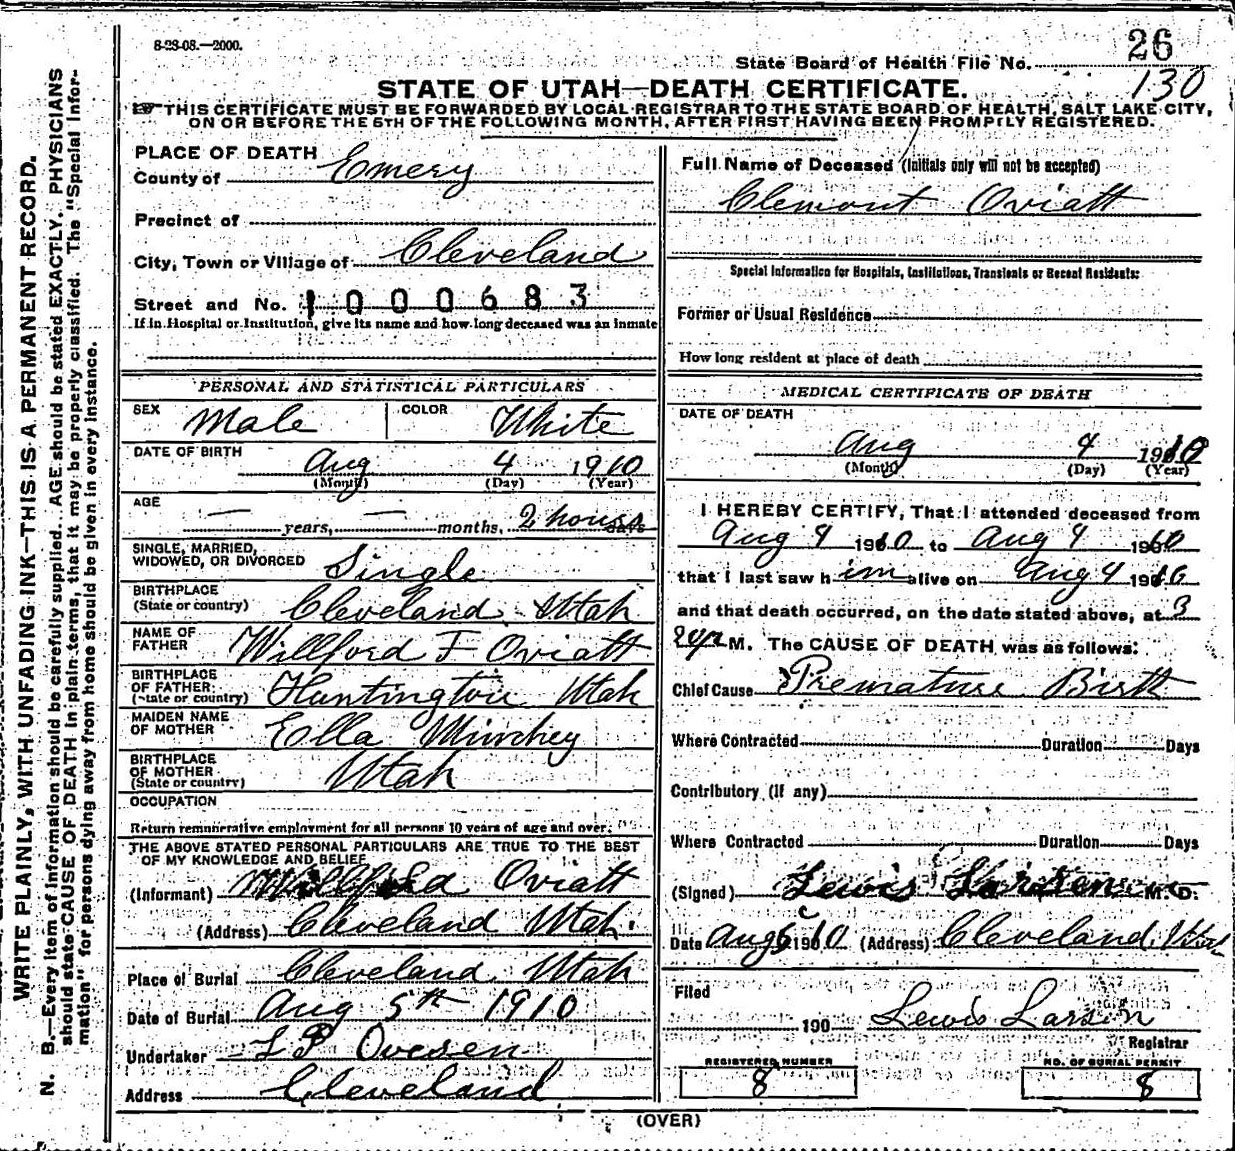 8-23-08.—2000.
26
State Board of Health File No.
130
STATE OF UTAH—DEATH CERTIFICATE.
THIS CERTIFICATE MUST BE FORWARDED BY LOCAL REGISTRAR TO THE STATE BOARD OF HEALTH, SALT LAKE CITY,
ON OR BEFORE THE 5TH OF THE FOLLOWING MONTH, AFTER FIRST HAVING BEEN PROMPTLY REGISTERED.
WRITE PLAINLY, WITH UNFADING INK—THIS IS A PERMANENT RECORD.
N. B.—Every item of information should be carefully supplied. AGE should be stated EXACTLY. PHYSICIANS
should state CAUSE OF DEATH in plain terms, that it may be properly classified. The "Special Infor-
mation" for persons dying away from home should be given in every instance.
PLACE OF DEATH
County of Emery
Precinct of
City, Town or Village of Cleveland
Street and No. 1000683
If in Hospital or Institution, give its name and how long deceased was an inmate
PERSONAL AND STATISTICAL PARTICULARS
SEX Male COLOR White
DATE OF BIRTH
Aug 4 1910
(Month) (Day) (Year)
AGE
— years, — months, 2 hours days
SINGLE, MARRIED,
WIDOWED, OR DIVORCED Single
BIRTHPLACE
(State or country) Cleveland Utah
NAME OF
FATHER Willford F Oviatt
BIRTHPLACE
OF FATHER
(State or country) Huntington Utah
MAIDEN NAME
OF MOTHER Ella Minchey
BIRTHPLACE
OF MOTHER
(State or country) Utah
OCCUPATION
Return remunerative employment for all persons 10 years of age and over.
THE ABOVE STATED PERSONAL PARTICULARS ARE TRUE TO THE BEST
OF MY KNOWLEDGE AND BELIEF
(Informant) Willford Oviatt
(Address) Cleveland Utah.
Place of Burial Cleveland Utah
Date of Burial Aug 5th 1910
Undertaker L P Ovesen
Address Cleveland
Full Name of Deceased (Initials only will not be accepted)
Clemont Oviatt
Special Information for Hospitals, Institutions, Transients or Recent Residents:
Former or Usual Residence
How long resident at place of death
MEDICAL CERTIFICATE OF DEATH
DATE OF DEATH
Aug 4 1910
(Month) (Day) (Year)
I HEREBY CERTIFY, That I attended deceased from
Aug 4 1910 to Aug 4 1910
that I last saw him alive on Aug 4 1910
and that death occurred, on the date stated above, at 3
M. The CAUSE OF DEATH was as follows:
Chief Cause Premature Birth
Where Contracted Duration Days
Contributory (If any)
Where Contracted Duration Days
(Signed) Lewis Larsen M. D.
Date Aug 5 1910 (Address) Cleveland, Utah
Filed
190 Lewis Larsen
Registrar
REGISTERED NUMBER
8
NO. OF BURIAL PERMIT
8
(OVER)